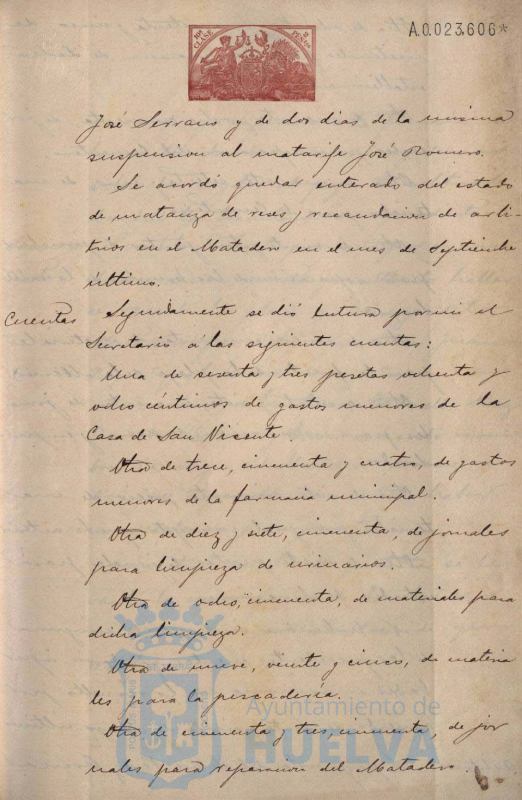 10ª CLASE
2 PESETAS
A.0.023.606*
José Serrano y de dos dias de la misma
suspension al matarife José Romero.
Se acordó quedar enterado del estado
de matanza de reses y recaudacion de arbi-
trios en el Matadero en el mes de Septiembre
último.
Cuentas
Seguidamente se dió lectura por mi el
Secretario á las siguientes cuentas:
Una de sesenta y tres pesetas ochenta y
ocho céntimos de gastos menores de la
Casa de San Vicente
Otra de trece, cincuenta y cuatro, de gastos
menores de la farmacia municipal.
Otra de diez y siete, cincuenta, de jornales
para limpieza de urinarios.
Otra de ocho, cincuenta, de materiales para
dicha limpieza.
Otra de nueve, veinte y cinco, de materia
les para la pescadería.
Otra de cincuenta y tres, cincuenta, de jor
nales para reparacion del Matadero.
Ayuntamiento de
HUELVA